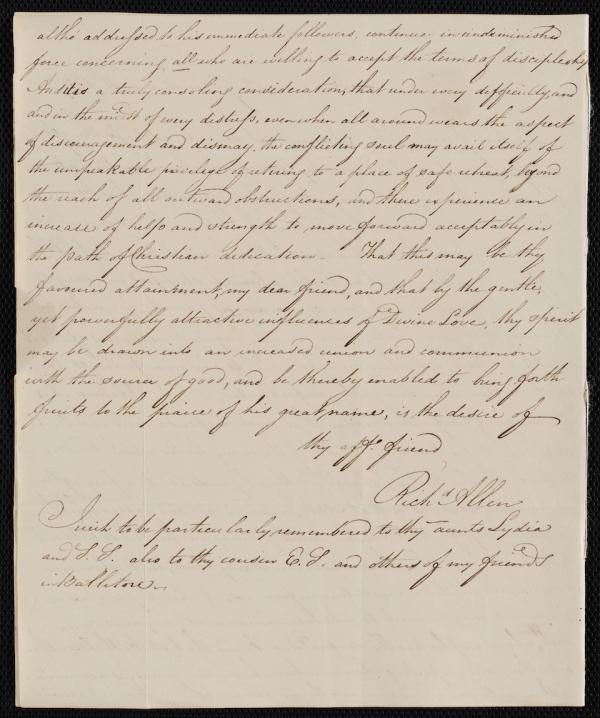 altho' addressed to his immediate followers, continue in undiminished
force concerning all who are willing to accept the terms of discipleship
And it is a truly consoling consideration, that under every difficulty, and
and in the midst of every distress, even when all around wears the aspect
of discouragement and dismay, the conflicting soul may avail itself of
the unspeakable privilege of retiring to a place of safe retreat, beyond
the reach of all outward obstructions, and there experience an
increase of help and strength to move forward acceptably in
the path of Christian dedication. That this may be thy
favoured attainment, my dear friend, and that by the gentle,
yet powerfully attractive influences of Divine Love, thy spirit
may be drawn into an increased union and communion
with the source of good, and be thereby enabled to bring forth
fruits to the praise of his great name, is the desire of
thy afft. friend
Richd. Allen
I wish to be particularly remembered to thy aunts Lydia
and also to thy cousin and others of my friends
in Ballitore.